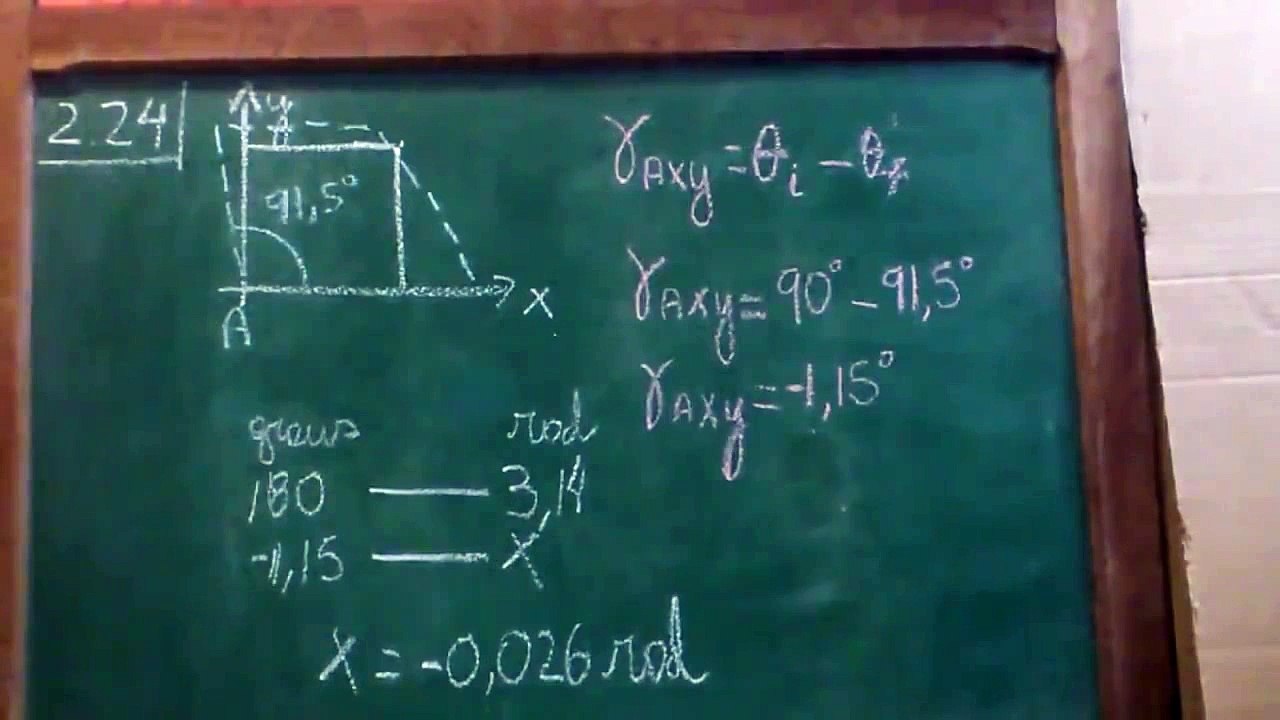 2.24
y
91,5°
A
x
γAxy = θi - θf
γAxy = 90° - 91,5°
γAxy = -1,15°
graus rad
180 — 3,14
-1,15 — X
X = -0,026 rad